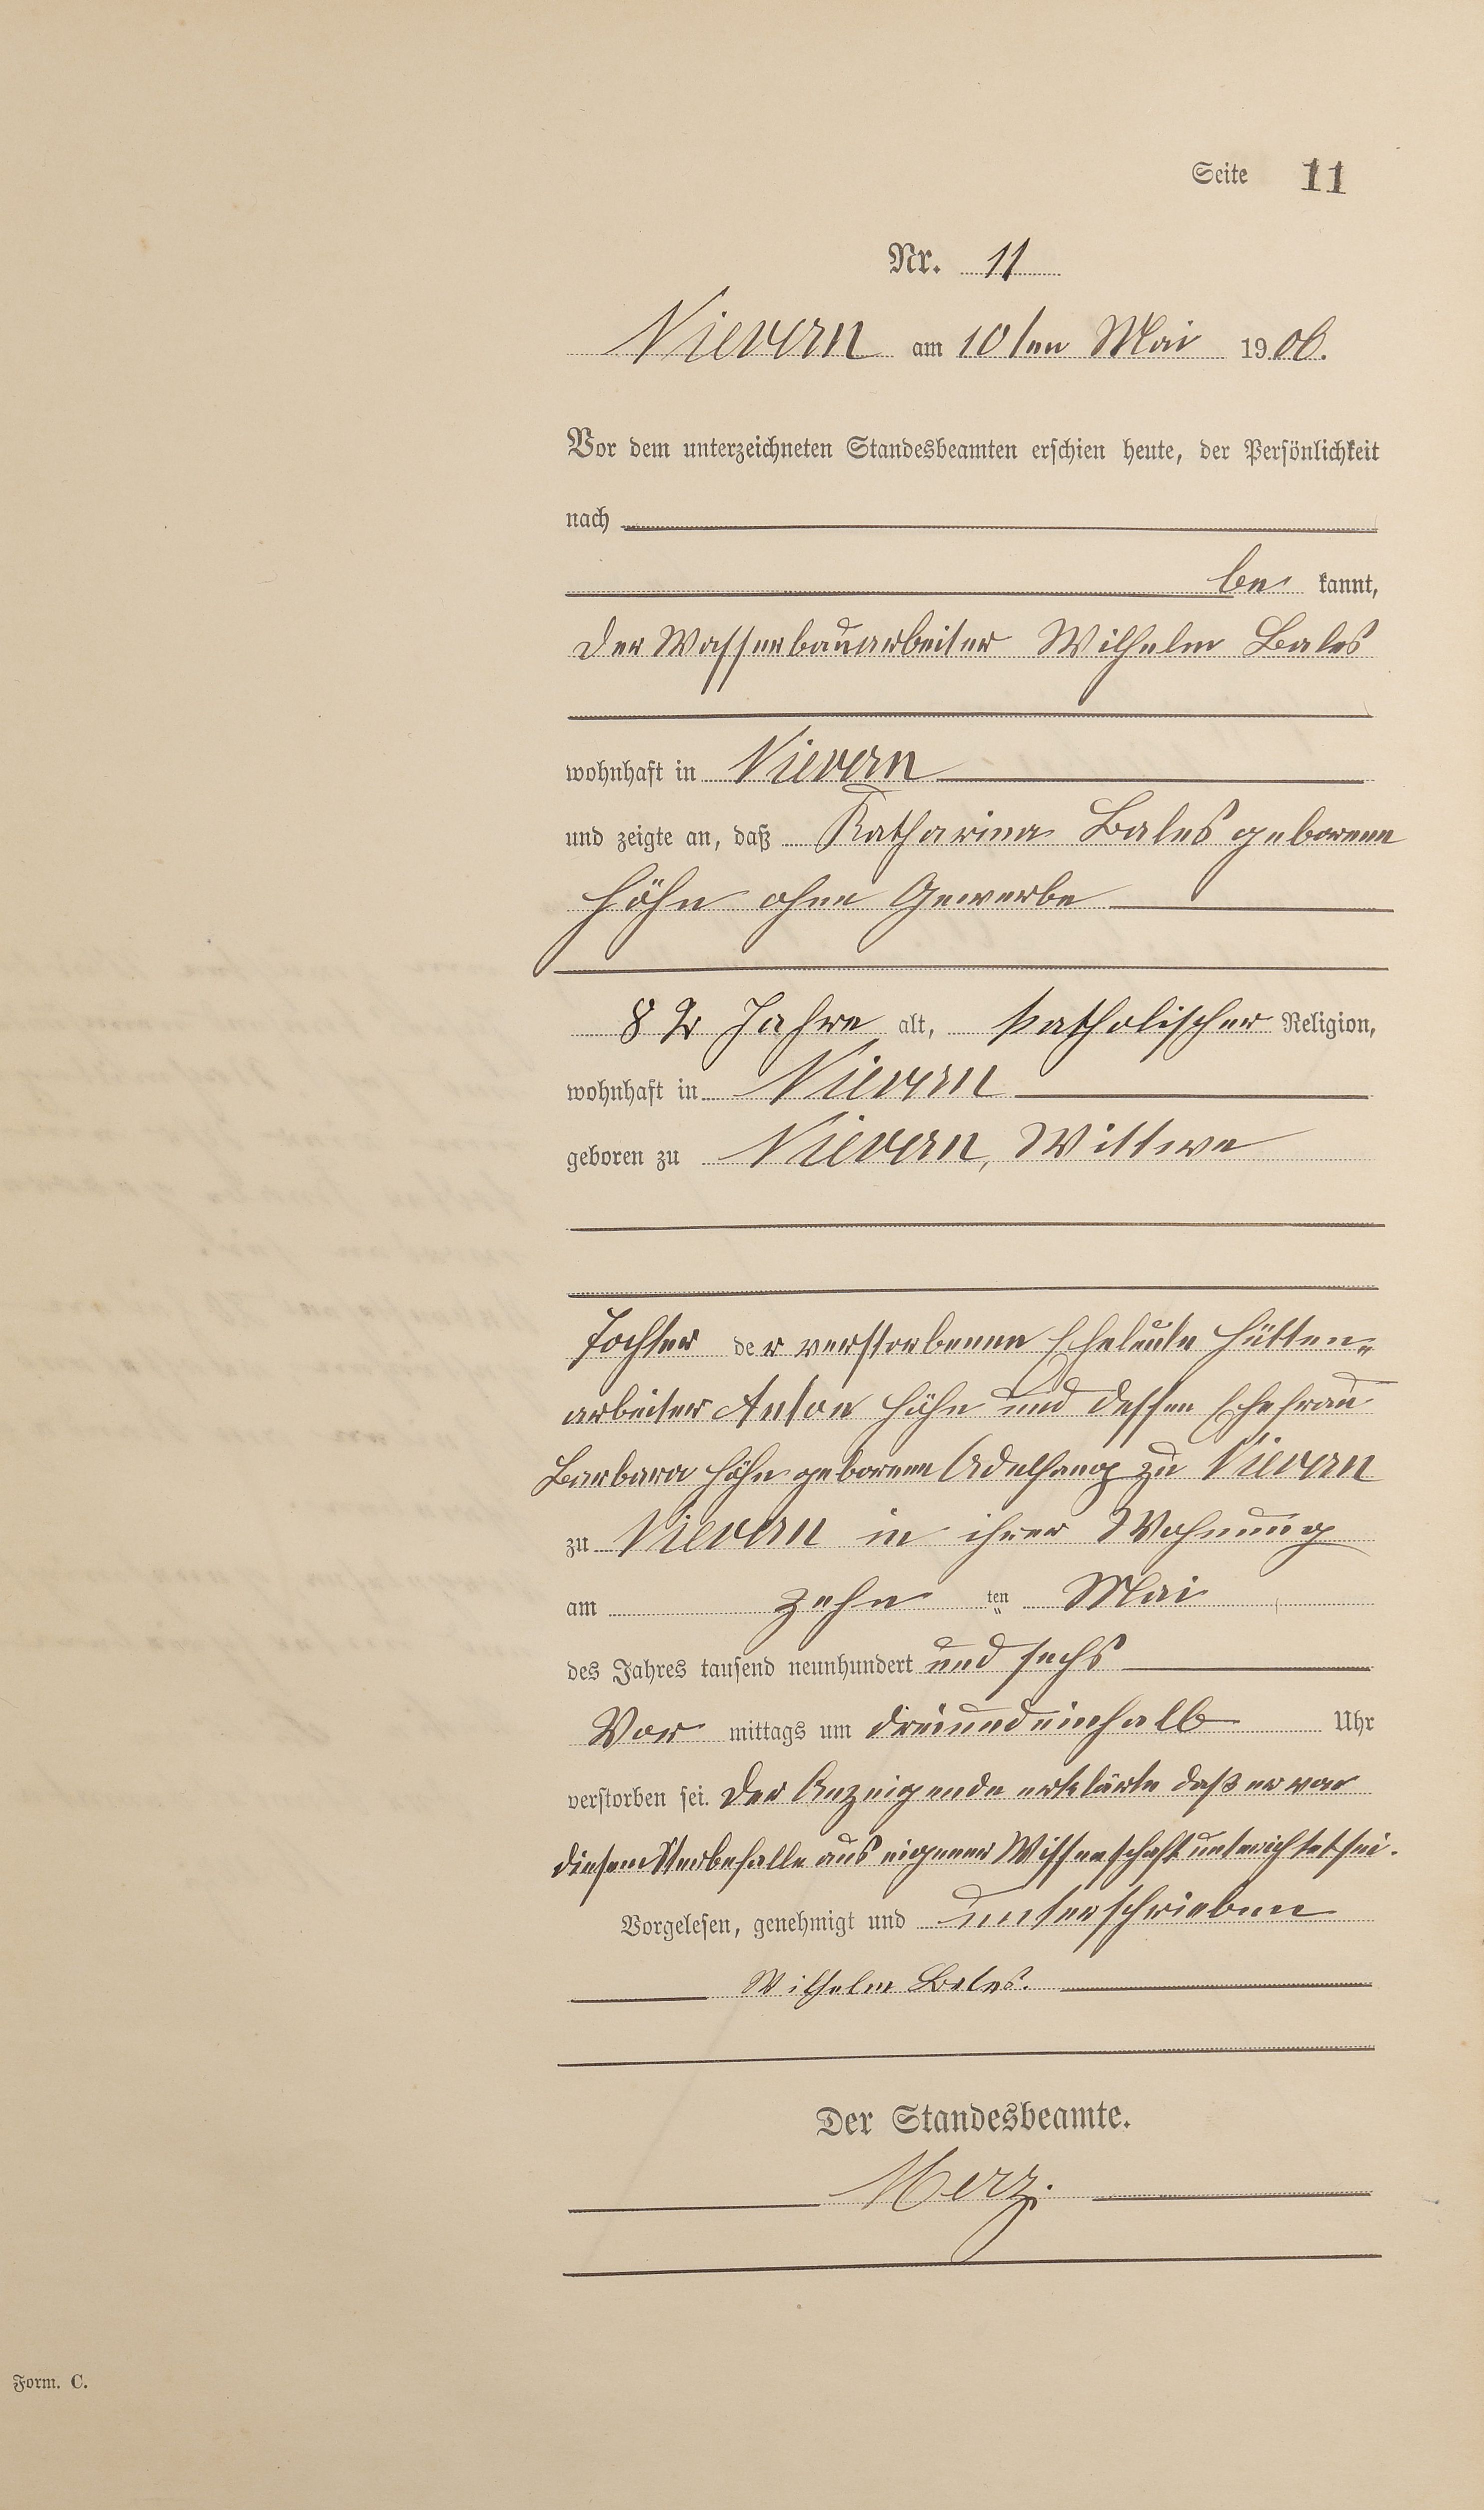 Seite 11
Nr. 11
Nievern am 10ten Mai 1906.
Vor dem unterzeichneten Standesbeamten erschien heute, der Persönlichkeit
nach
be kannt,
der Wasserbauarbeiter Wilhelm Bales
wohnhaft in Nievern
und zeigte an, daß Katharina Bales geborene
Höhn ohne Gewerbe
82 Jahre alt, katholischer Religion,
wohnhaft in Nievern
geboren zu Nievern, Wittwe
Tochter der verstorbenen Eheleute Hütten-
arbeiter Anton Höhn und dessen Ehefrau
Barbara Höhn geborene Adelfang zu Nievern
zu Nievern in ihrer Wohnung
am zehn ten Mai
des Jahres tausend neunhundert und sechs
Vor mittags um dreiundeinhalb Uhr
verstorben sei. Der Anzeigende erklärte daß er von
diesem Sterbefalle aus eigener Wissenschaft unterichtet sei.
Vorgelesen, genehmigt und unterschrieben
Wilhelm Bales.
Der Standesbeamte.
Merz.
Form. C.